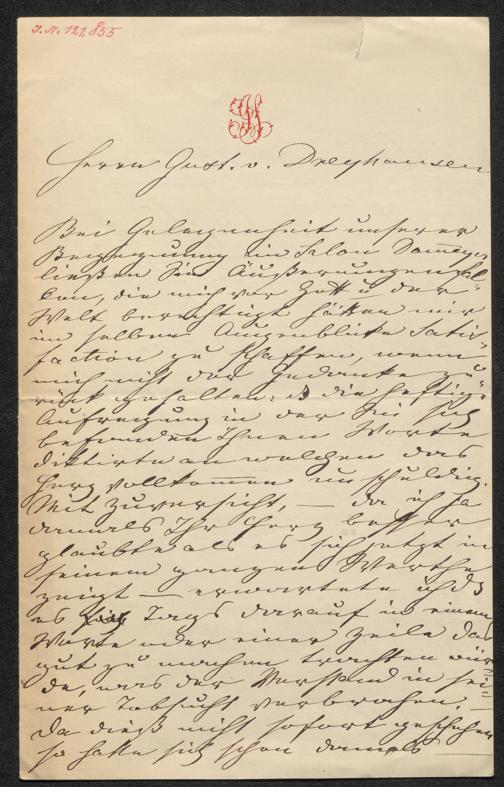 J. N. 121,855
Herrn Gust. v. Dreyhausen
Bei Gelegenheit unserer
Begegnung im Salon
ließen Sie Äußerungen fal-
len, die mich vor Gott u der
Welt berechtigt hätten mir
im selben Augenblicke Satis-
faction zu schaffen, wenn
mich nicht der Gedanke zu-
rück gehalten: die heftige
Aufregung in der Sie sich
befanden Ihnen Worte
diktirte an welchen das
Herz vollkommen unschuldig.
Mit Zuversicht, — da ich ja
damals Ihr Herz besser
glaubte als es sich jetzt in
seinem ganzen Werthe
zeigt — erwartete ich
es Tags darauf in einem
Worte oder einer Zeile das
gut zu machen trachten wür-
de, was der Verstand in sei-
ner Tobsucht verbrochen. —
Da dieß nicht sofort geschehen
so hatte sich schon damals